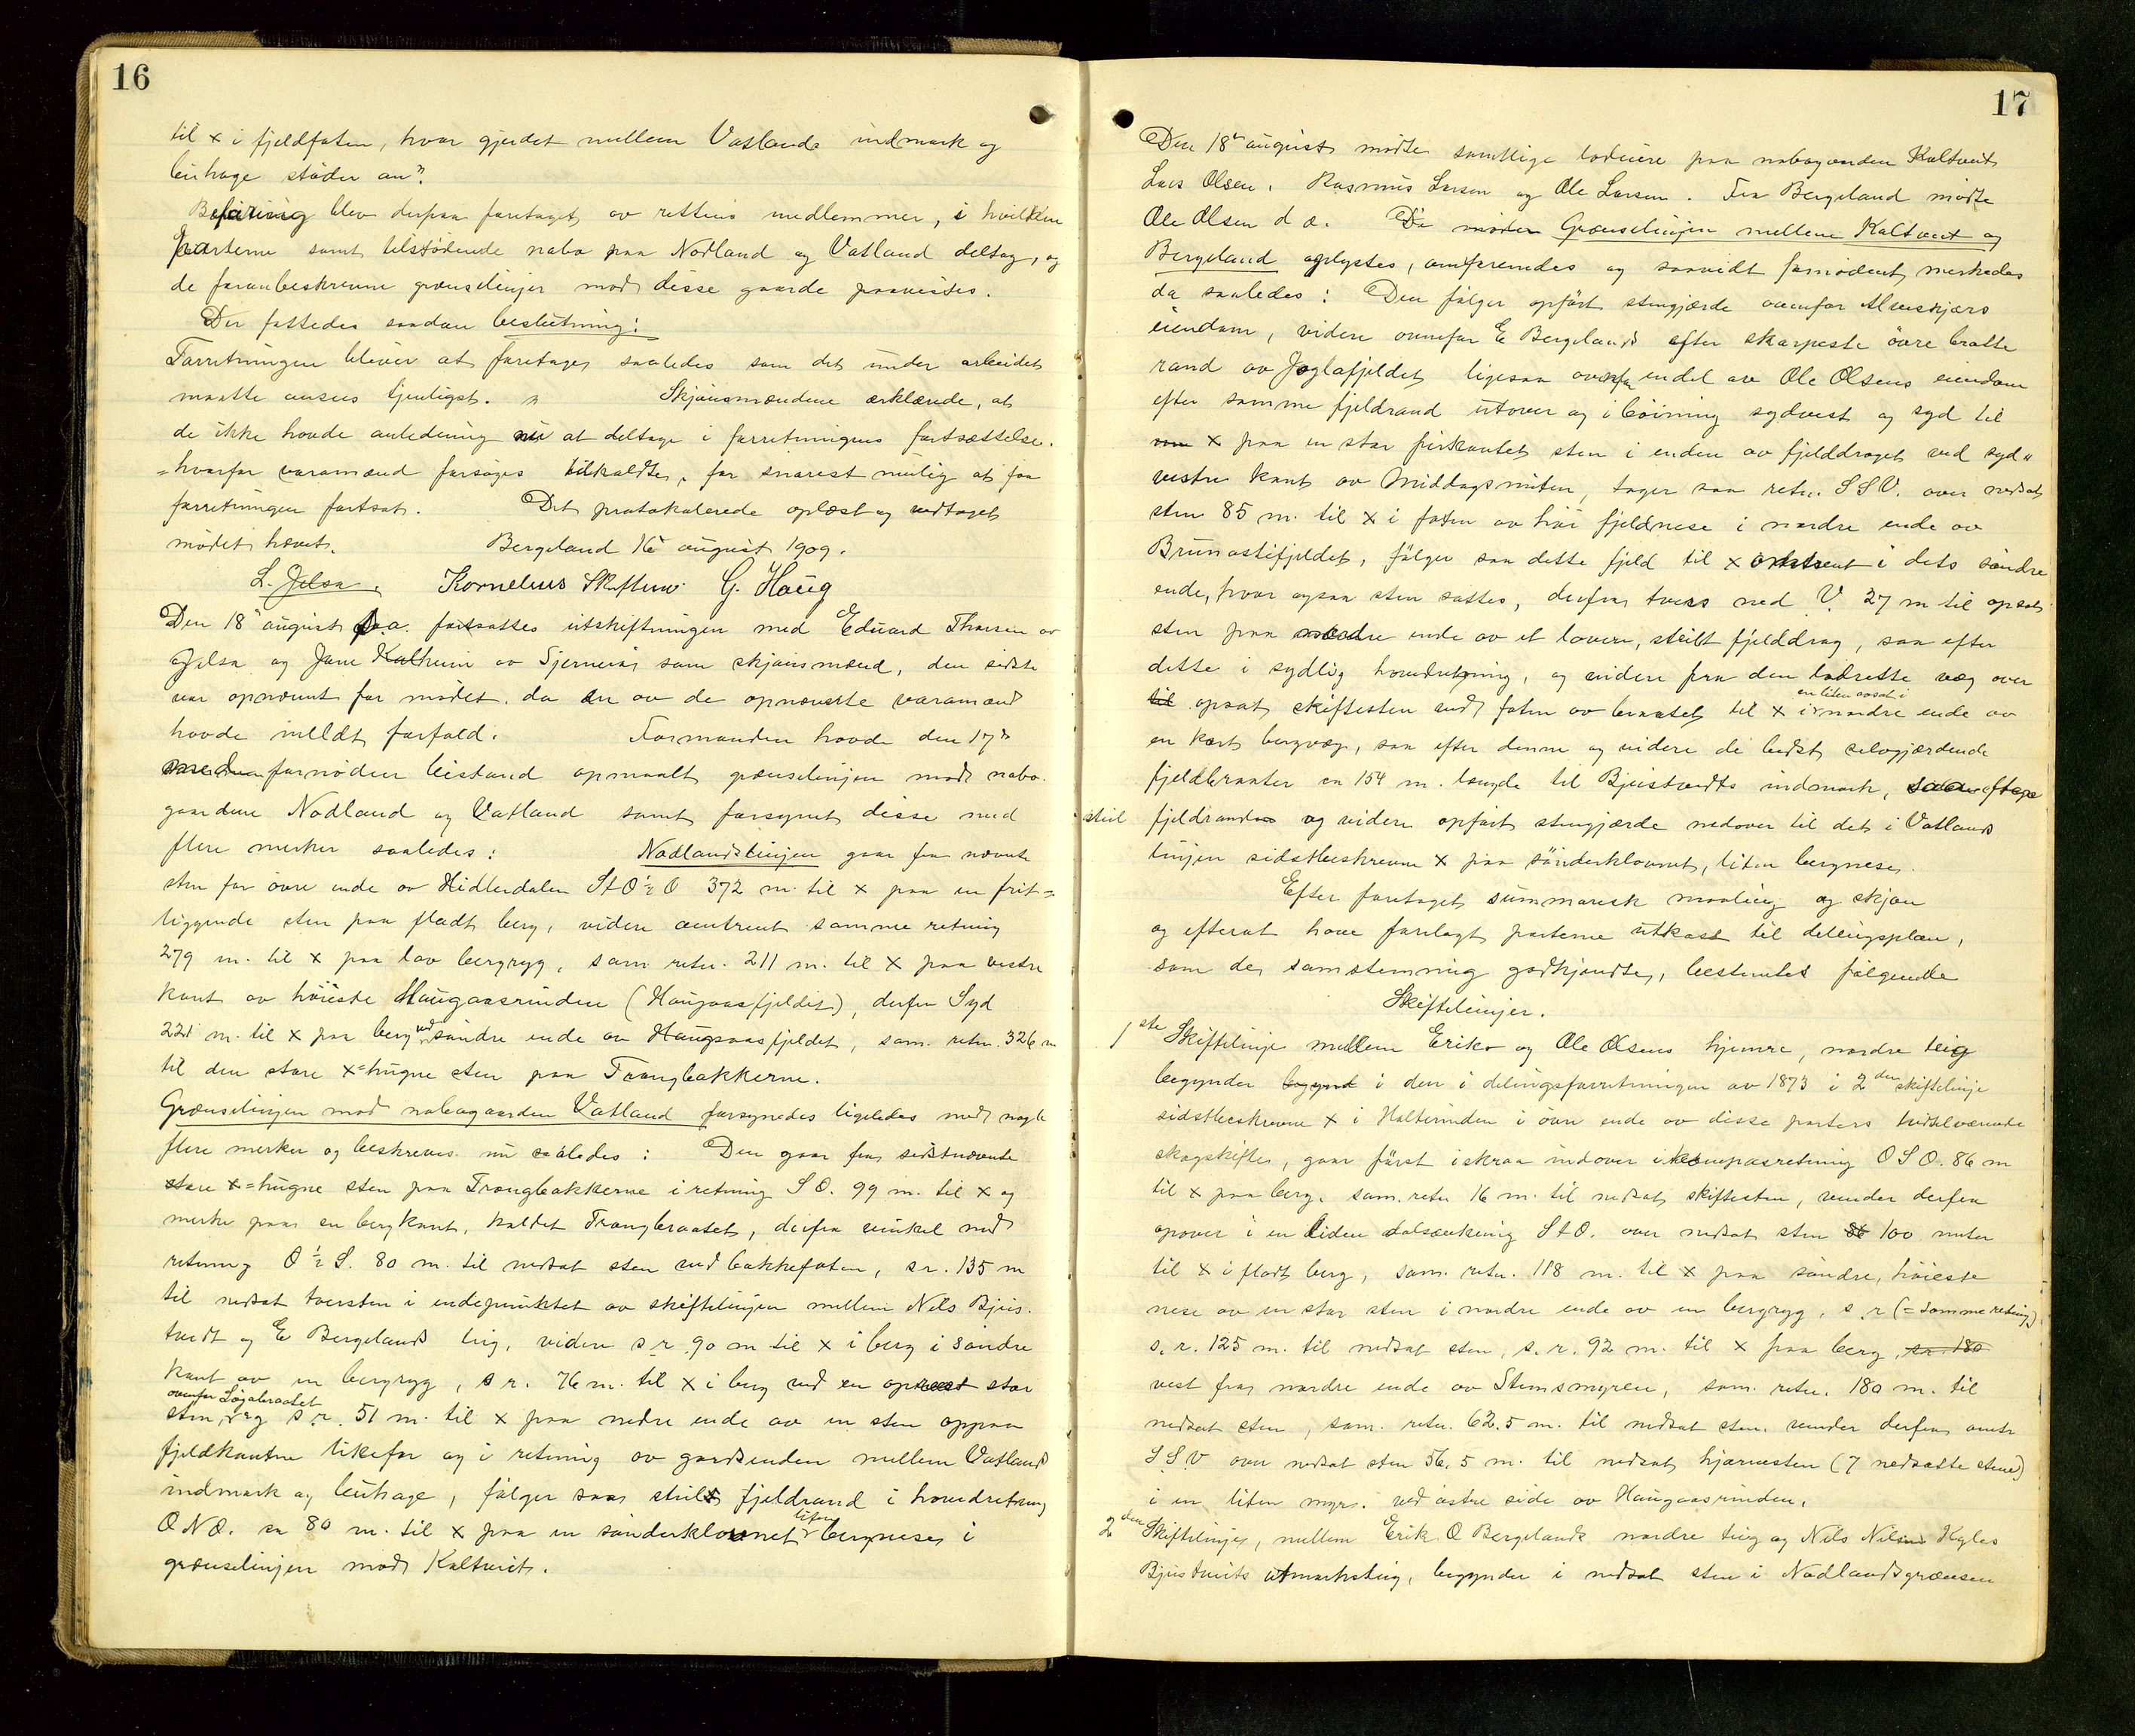 16
til x i fjeldfoten, hvor gjerdet mellem Vatlands indmark og
beithage støder an".
Befaring blev derpaa foretaget av rettens medlemmer, i hvilken
parterne samt tilstødende nabo paa Nodland og Vatland deltog, og
de foranbeskrevne grænselinjer mod disse gaarde paavistes.
Der fattedes saadan beslutning:
Forretningen bliver at foretages saaledes som det under arbeidet
maatte ansees tjenligst. Skjønsmændene erklærede, at
de ikke havde anledning nu at deltage i forretningens fortsættelse.
= hvorfor varamænd forsøges tilkaldte, for snarest mulig at faa
forretningen fortsat. Det protokolerede oplæst og vedtaget
mødet hævet. Bergeland 16 august 1909.
L. Jelsa. Kornelius Skiftun G. Haug
Den 18 august s.a. fortsattes utskiftningen med Edvard Thorsen av
Jelsa og Jane Kalheim av Sjernerøi som skjønsmænd, den sidste
var opnævnt for mødet, da en av de opnævnte varamænd
havde meldt forfald. Formanden havde den 17de
med fornøden bistand opmaalt grænselinjen mod nabo-
gaardene Nodland og Vatland samt forsynet disse med
flere merker saaledes: Nodlandslinjen gaar fra nævnte
sten for øvre ende av Hidlerdalen StO ½ O 372 m. til x paa en frit=
liggende sten paa fladt berg, videre omtrent samme retning
279 m. til x paa lav bergryg, sam retn. 211 m. til x paa vestre
kant av høieste Haugaasrinden (Haugaasfjeldet), derfra Syd
221 m. til x paa berg ved søndre ende av Haugaasfjeldet, sam. retn. 326 m
til den store x=hugne sten paa Trangbakkerne.
Grænselinjen mod nabogaarden Vatland forsynedes ligeledes med nogle
flere merker og beskreves nu således: Den gaar fra sidstnævnte
store x=hugne sten paa Trangbakkerne i retning S O. 99 m. til x og
merke paa en bergkant, kaldet Trangbraatet, derfra vinkel med
retning O ½ S. 80 m. til nedsat sten ved bakkefoten, s.r. 135 m
til nedsat tversten i endepunktet av skiftelinjen mellem Nils Bjus-
tvedt og E Bergelands teig, videre s.r. 90 m til x i berg i søndre
kant av en bergryg, s r. 76 m. til x i berg ved en opreist stor
ovenfor Løgabraatet
sten, og s.r. 51 m. til x paa nedre ende av en sten oppaa
fjeldkanten likefor og i retning av gardsenden mellem Vatlands
indmark og beithage, følger saa steile fjeldrand i hovedretning
O N O. ca 80 m. til x paa en sønderklovnet liten bergnese i
grænselinjen mod Kaltveit.
17
Den 18 august mødte samtlige lodeiere paa nabogaarden Kaltveit
Lars Olsen, Rasmus Larsen og Ole Larsen. Fra Bergeland mødte
Ole Olsen d æ. Da Grænselinjen mellem Kaltveit og
Bergeland oplystes, omforenedes og saavidt fornødent merkedes
da saaledes: Den følger opført stengjærde ovenfor
eiendom, videre ovenfor E Bergelands efter skarpeste øvre bratte
rand av Joglafjeldet ligesaa ovenfor endel av Ole Olsens eiendom
efter samme fjeldrand utover og i bøining sydvest og syd til
x paa en stor firkantet sten i enden av fjelddraget ved syd=
vestre kant av Middagsnuten, tager saa retn. S S V. over nedsat
sten 85 m. til x i foten av høi fjeldnese i nordre ende av
Brunostifjeldet, følger saa dette fjeld til x omtrent i dets søndre
ende, hvor ogsaa sten sattes, derfra tvers ned V. 27 m til opsat
sten paa nordre ende av et lavere, steilt fjelddrag, saa efter
dette i sydlig hovedretning, og videre fra den lodrette væg over
til opsat skiftesten ved foten av braatet til x i en liten avsat i nordre ende av
en kort bergvæg, saa efter denne og videre de bedst selvgjærdende
fjeldbranter ca 154 m. længde til Bjustvedts indmark, saa efter
steil fjeldrand og videre opført stengjærde nedover til det i Vatlands
linjen sidstbeskrevne x paa sønderklovnet, liten bergnese.
Efter foretaget summarisk maaling og skjøn
og efterat have forelagt parterne utkast til delingsplan,
som de samstemmig godkjendte, bestemtes følgende
Skiftelinjer.
1ste Skiftelinje mellem Eriks og Ole Olsens hjemre, nordre teig
begynder i den i delingsforretningen av 1873 i 2den skiftelinje
sidstbeskrevne x i Holterinden i øvre ende av disse parters tidselværende
skogskifter, gaar først iskraa indover i kompasretning O S O. 86 m
til x paa berg, sam. retn 16 m. til nedsat skiftesten, vender derfra
opover i en liden dalsænkning StO. over nedsat sten 100 meter
til x i fladt berg, sam. retn. 118 m. til x paa søndre, høieste
nese av en stor sten i nordre ende av en bergryg, s.r (= samme retning)
s. r. 125 m. til nedsat sten, s. r. 92 m. til x paa berg, sr. 180
vest fra nordre ende av Stemsmyren, sam. retn. 180 m. til
nedsat sten, sam. retn. 62.5 m. til nedsat sten. vender derfra omtr
S S V over nedsat sten 56.5 m. til nedsat hjørnesten (7 nedsatte stene)
i en liten myr. ved østre side av Haugaasrinden.
2den Skiftelinje, mellem Erik O Bergelands nordre teig og Nils Nilsens Kyles
Bjustveits utmarksteig, begynder i nedsat sten i Nodlandsgrænsen